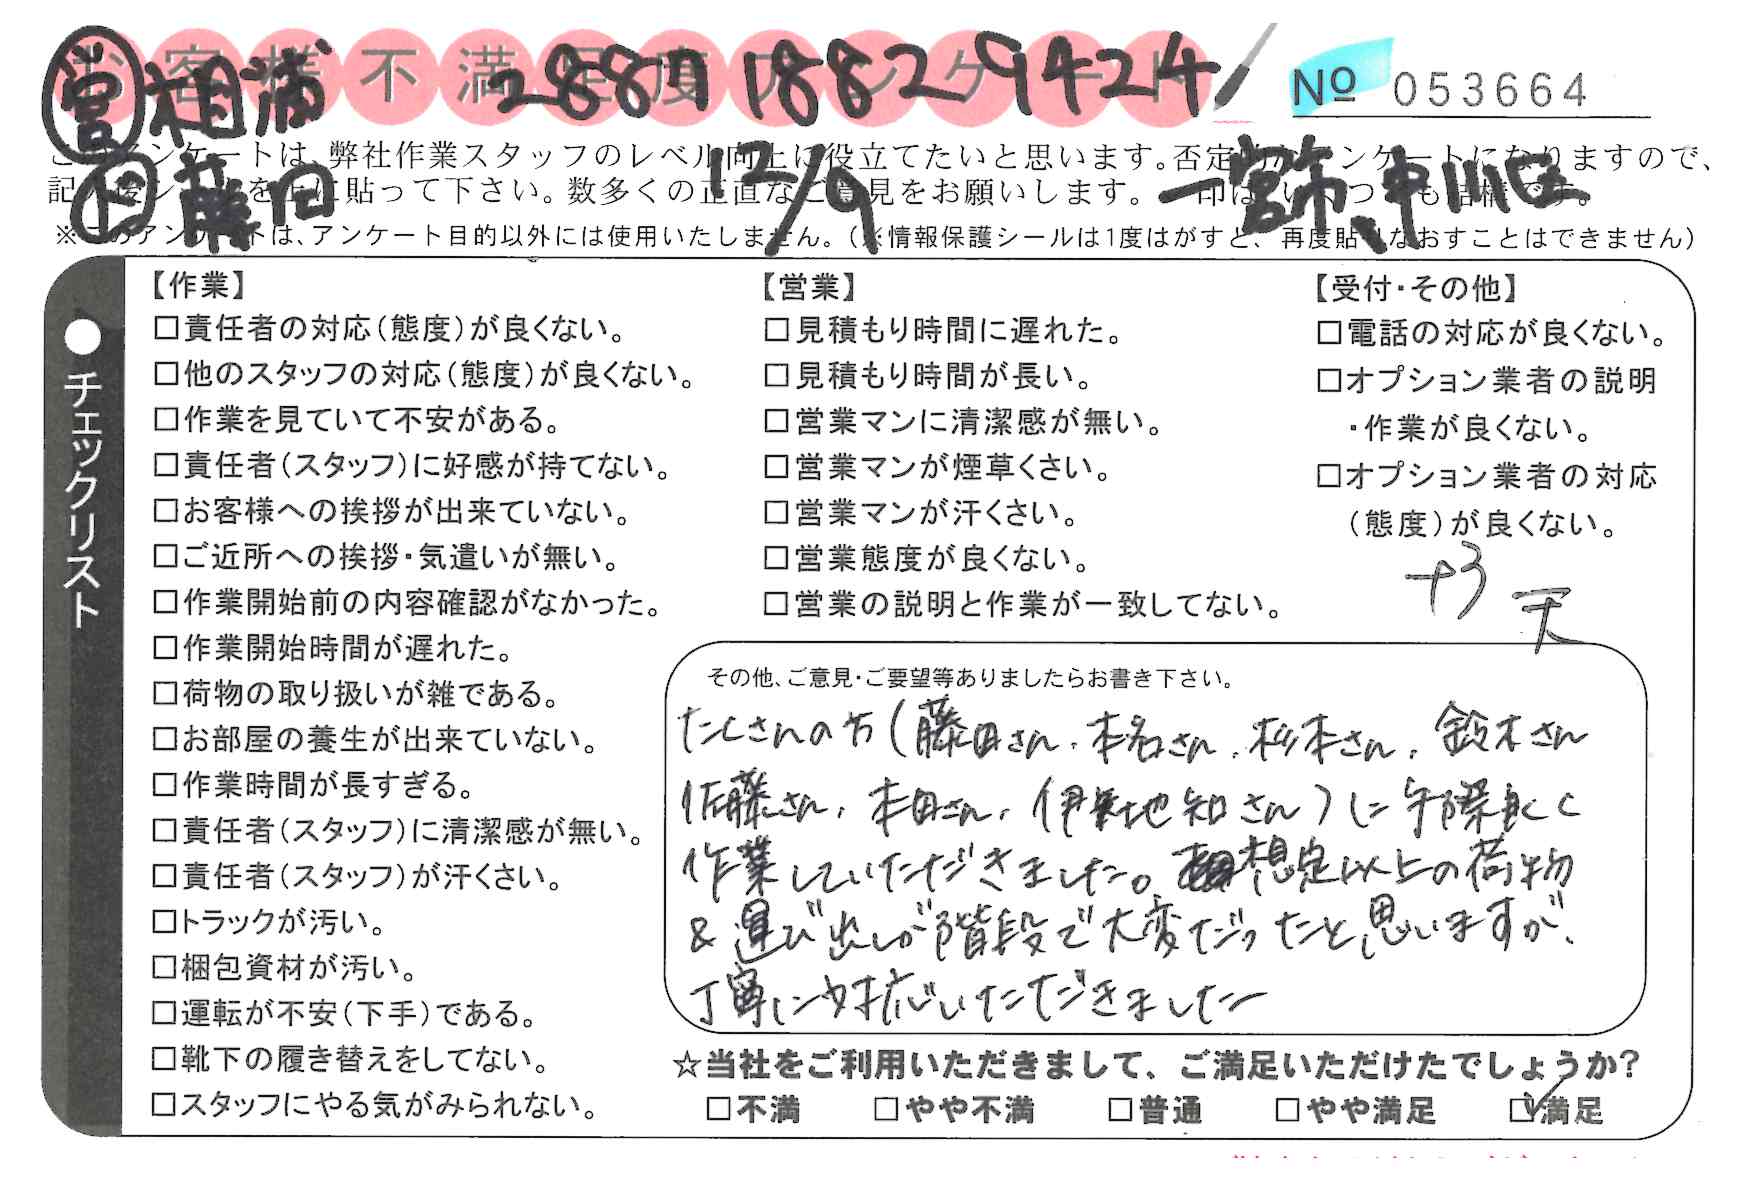 お客様不満足度アンケート
営 相浦 2887 1882 9424
No 053664
このアンケートは、弊社作業スタッフのレベル向上に役立てたいと思います。否定的なアンケートになりますので、
を上に貼って下さい。数多くの正直なご意見をお願いします。
藤田 12/9 一宮市、中川区
※このアンケートは、アンケート目的以外には使用いたしません。(※情報保護シールは1度はがすと、再度貼りなおすことはできません)
●チェックリスト
【作業】
□責任者の対応(態度)が良くない。
□他のスタッフの対応(態度)が良くない。
□作業を見ていて不安がある。
□責任者(スタッフ)に好感が持てない。
□お客様への挨拶が出来ていない。
□ご近所への挨拶・気遣いが無い。
□作業開始前の内容確認がなかった。
□作業開始時間が遅れた。
□荷物の取り扱いが雑である。
□お部屋の養生が出来ていない。
□作業時間が長すぎる。
□責任者(スタッフ)に清潔感が無い。
□責任者(スタッフ)が汗くさい。
□トラックが汚い。
□梱包資材が汚い。
□運転が不安(下手)である。
□靴下の履き替えをしてない。
□スタッフにやる気がみられない。
【営業】
□見積もり時間に遅れた。
□見積もり時間が長い。
□営業マンに清潔感が無い。
□営業マンが煙草くさい。
□営業マンが汗くさい。
□営業態度が良くない。
□営業の説明と作業が一致してない。
【受付・その他】
□電話の対応が良くない。
□オプション業者の説明
・作業が良くない。
□オプション業者の対応
(態度)が良くない。
+3
その他、ご意見・ご要望等ありましたらお書き下さい。
たくさんの方(藤田さん、本名さん、杉本さん、鈴木さん
佐藤さん、本田さん、伊地知さん)に手際良く
作業していただきました。想定以上の荷物
&運び出しが階段で大変だったと思いますが、
丁寧に対応いただきました
☆当社をご利用いただきまして、ご満足いただけたでしょうか?
□不満 □やや不満 □普通 □やや満足 ☑満足